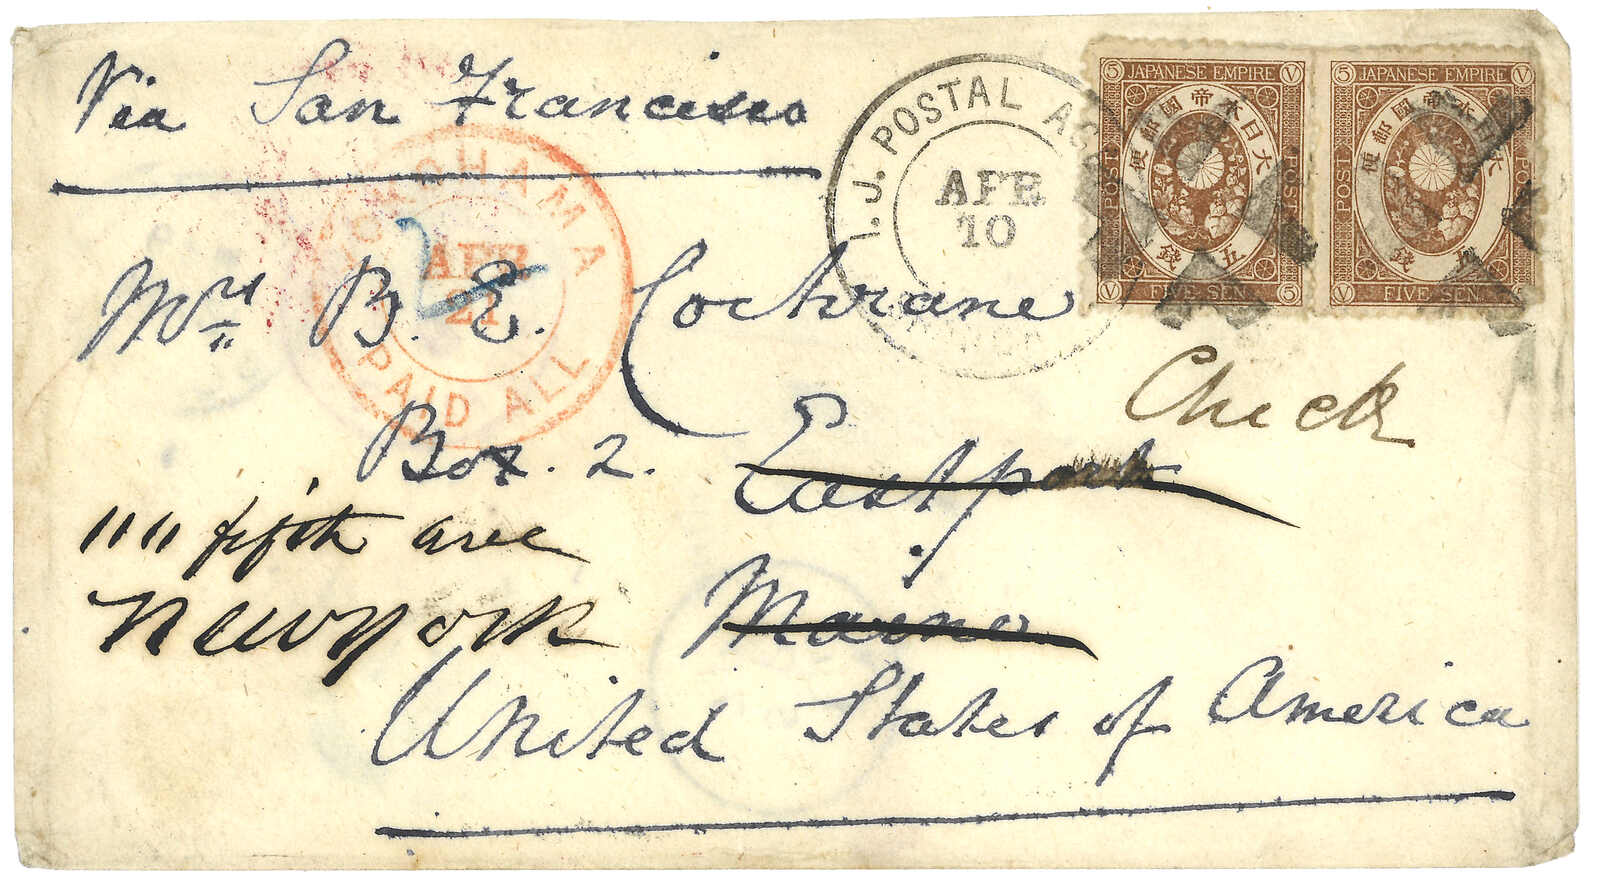 Via San Francisco
I.J. POSTAL
APR
10
5 JAPANESE EMPIRE V
大日本帝國郵便
POST
POST
五錢
V FIVE SEN 5
5 JAPANESE EMPIRE V
大日本帝國郵便
POST
POST
五錢
V FIVE SEN
YOKOHAMA
APR
21
PAID ALL
2
Mrs B. E. Cochrane
Check
Box. 2. Eastport
"" fifth ave
Maine
New york
United States of America